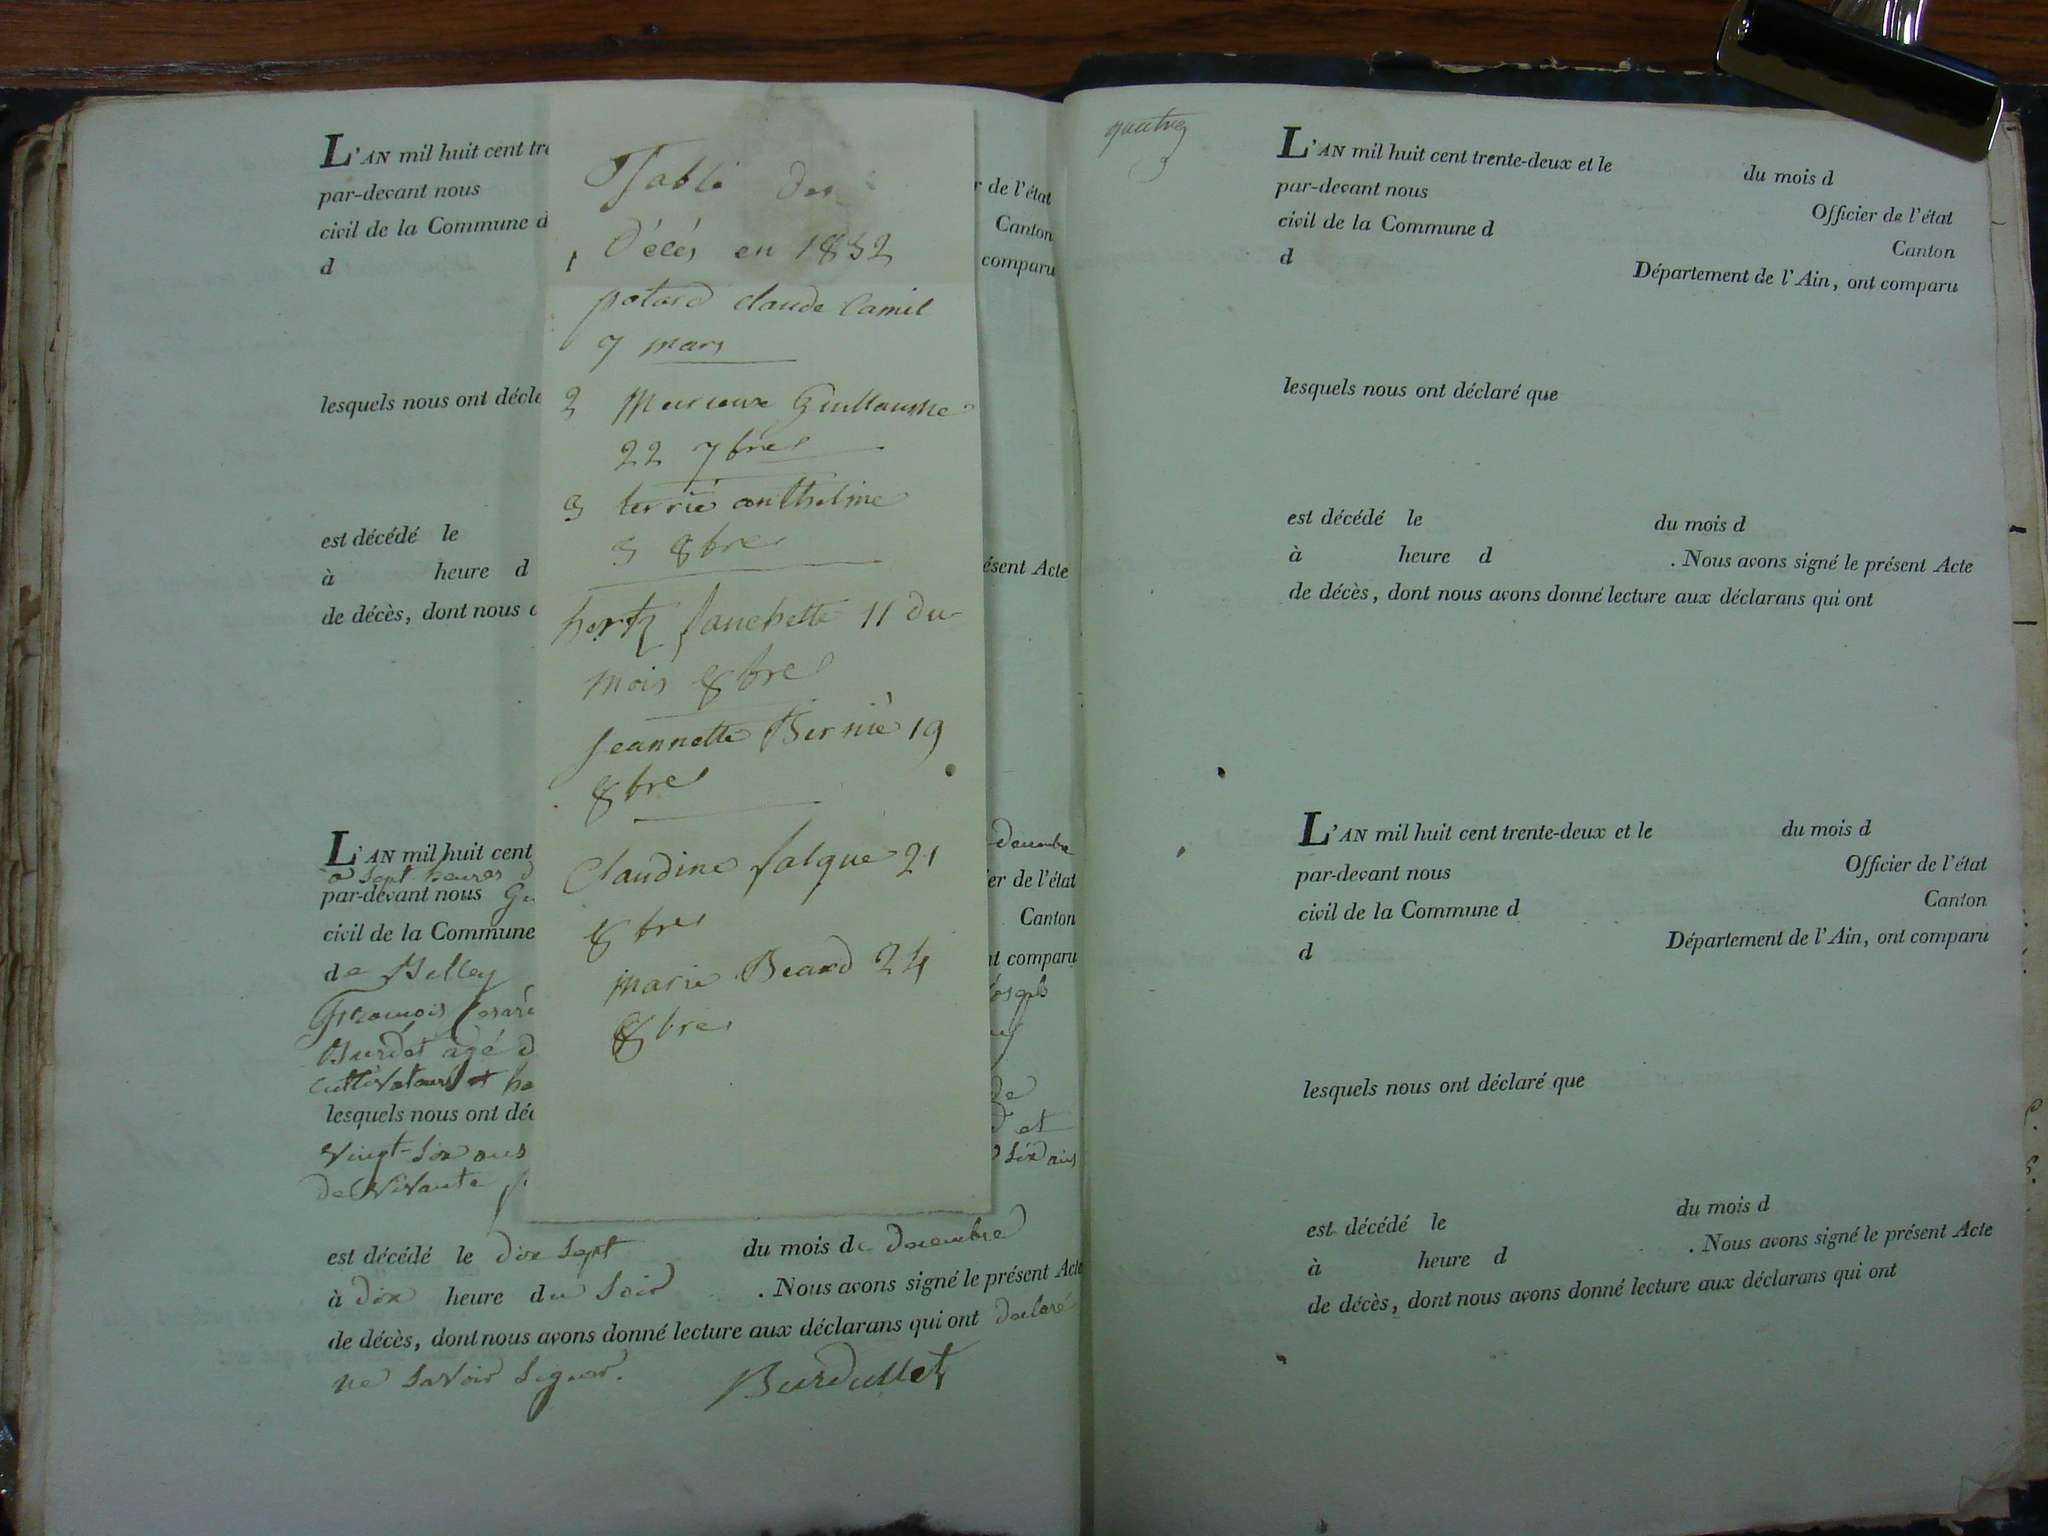 L'AN mil huit cent tre
par-devant nous
civil de la Commune d
d
lesquels nous ont décla
est décédé le
à heure d
de décès, dont nous a
L'AN mil huit cent
à sept heures d
par-devant nous Gu
civil de la Commune
de Belley
François
Burdet agé d
cultivateurs et ha
lesquels nous ont déc
vingt-six ans
de vivante
r de l'état
Canton
comparu
ésent Acte
decembre
er de l'état
Canton
nt comparu
Joseph
de
et
six ans
est décédé le dix sept du mois de decembre
à dix heure du soir . Nous avons signé le présent Acte
de décès, dont nous avons donné lecture aux déclarans qui ont declaré
ne savoir signer. Burdullet
Table des
1 Décés en 1832
potard claude Camil
7 mars
2 Mercieux Guillaume
22 7bre
3 terrié anthelme
3 8bre
hertz fanchette 11 du
mois 8bre
Jeannette Bernié 19
8bre
Claudine falque 21
8bre
marie Beard 24
8bre
quatre
L'AN mil huit cent trente-deux et le du mois d
par-devant nous Officier de l'état
civil de la Commune d Canton
d Département de l'Ain, ont comparu
lesquels nous ont déclaré que
est décédé le du mois d
à heure d . Nous avons signé le présent Acte
de décès, dont nous avons donné lecture aux déclarans qui ont
L'AN mil huit cent trente-deux et le du mois d
par-devant nous Officier de l'état
civil de la Commune d Canton
d Département de l'Ain, ont comparu
lesquels nous ont déclaré que
est décédé le du mois d
à heure d . Nous avons signé le présent Acte
de décès, dont nous avons donné lecture aux déclarans qui ont